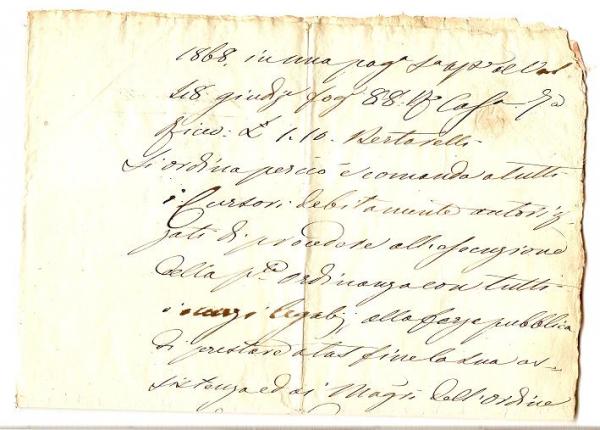 1868. in una pag.
218 giudiz. fog. 88. Cass. 7a
ricev: £ 1.10. Bertarelli
Si ordina perciò e comanda a tutti
i Cursori debitamente autoriz-
zati di procedere all'esecuzione
della pnte ordinanza con tutti
i mezzi legali, alla forza pubblica
di prestare a tal fine la sua as-
sistenza ed ai Magri dell'ordine